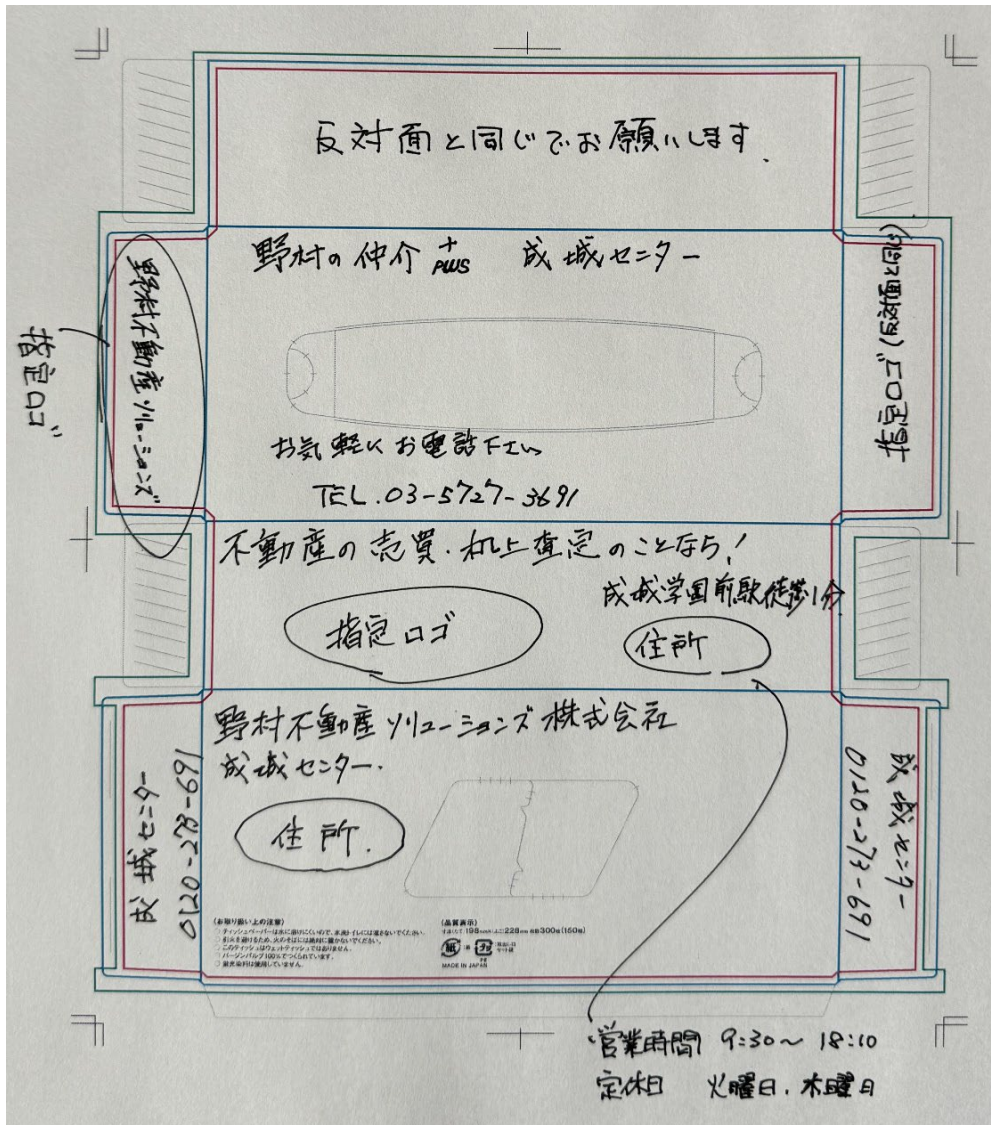 反対面と同じでお願いします.
野村の仲介 + PLUS 成城センター
お気軽にお電話下さい
TEL.03-5727-3691
野村不動産ソリューションズ
指定ロゴ
指定ロゴ(反対面と同じ)
不動産の売買・机上査定のことなら!
成城学園前駅徒歩1分
指定ロゴ
住所
野村不動産ソリューションズ株式会社
成城センター.
住所.
成城センター
0120-278-691
成城センター
0120-273-691
〈お取り扱い上の注意〉
○ティッシュペーパーは水に溶けにくいので、水洗トイレには流さないでください。
○引火を避けるため、火のそばには絶対に置かないでください。
○このティッシュはウェットティッシュではありません。
○バージンパルプ100%でつくられています。
○蛍光染料は使用していません。
〈品質表示〉
寸法:たて 198mm×よこ 228mm 枚数 300枚(150組)
紙
MADE IN JAPAN
営業時間 9:30〜18:10
定休日 火曜日、水曜日